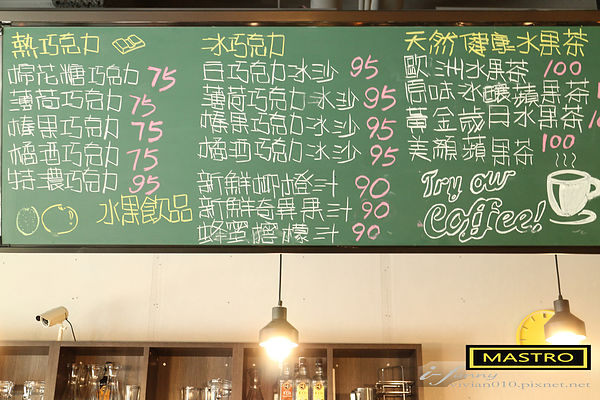 熱巧克力
棉花糖巧克力 75
薄荷巧克力 75
榛果巧克力 75
橘酒巧克力 75
特濃巧克力 95
水果飲品
冰巧克力
巨巧克力冰沙 95
薄荷巧克力冰沙 95
榛果巧克力冰沙 95
橘酒巧克力冰沙 95
新鮮柳橙汁 90
新鮮奇異果汁 90
蜂蜜檸檬汁 90
天然健康水果茶
歐洲水果茶 100
原味冰釀蘋果茶
黃金歲月水果茶
美顏蘋果茶 100
Try our
Coffee!
MASTRO
vivian010.pixnet.net